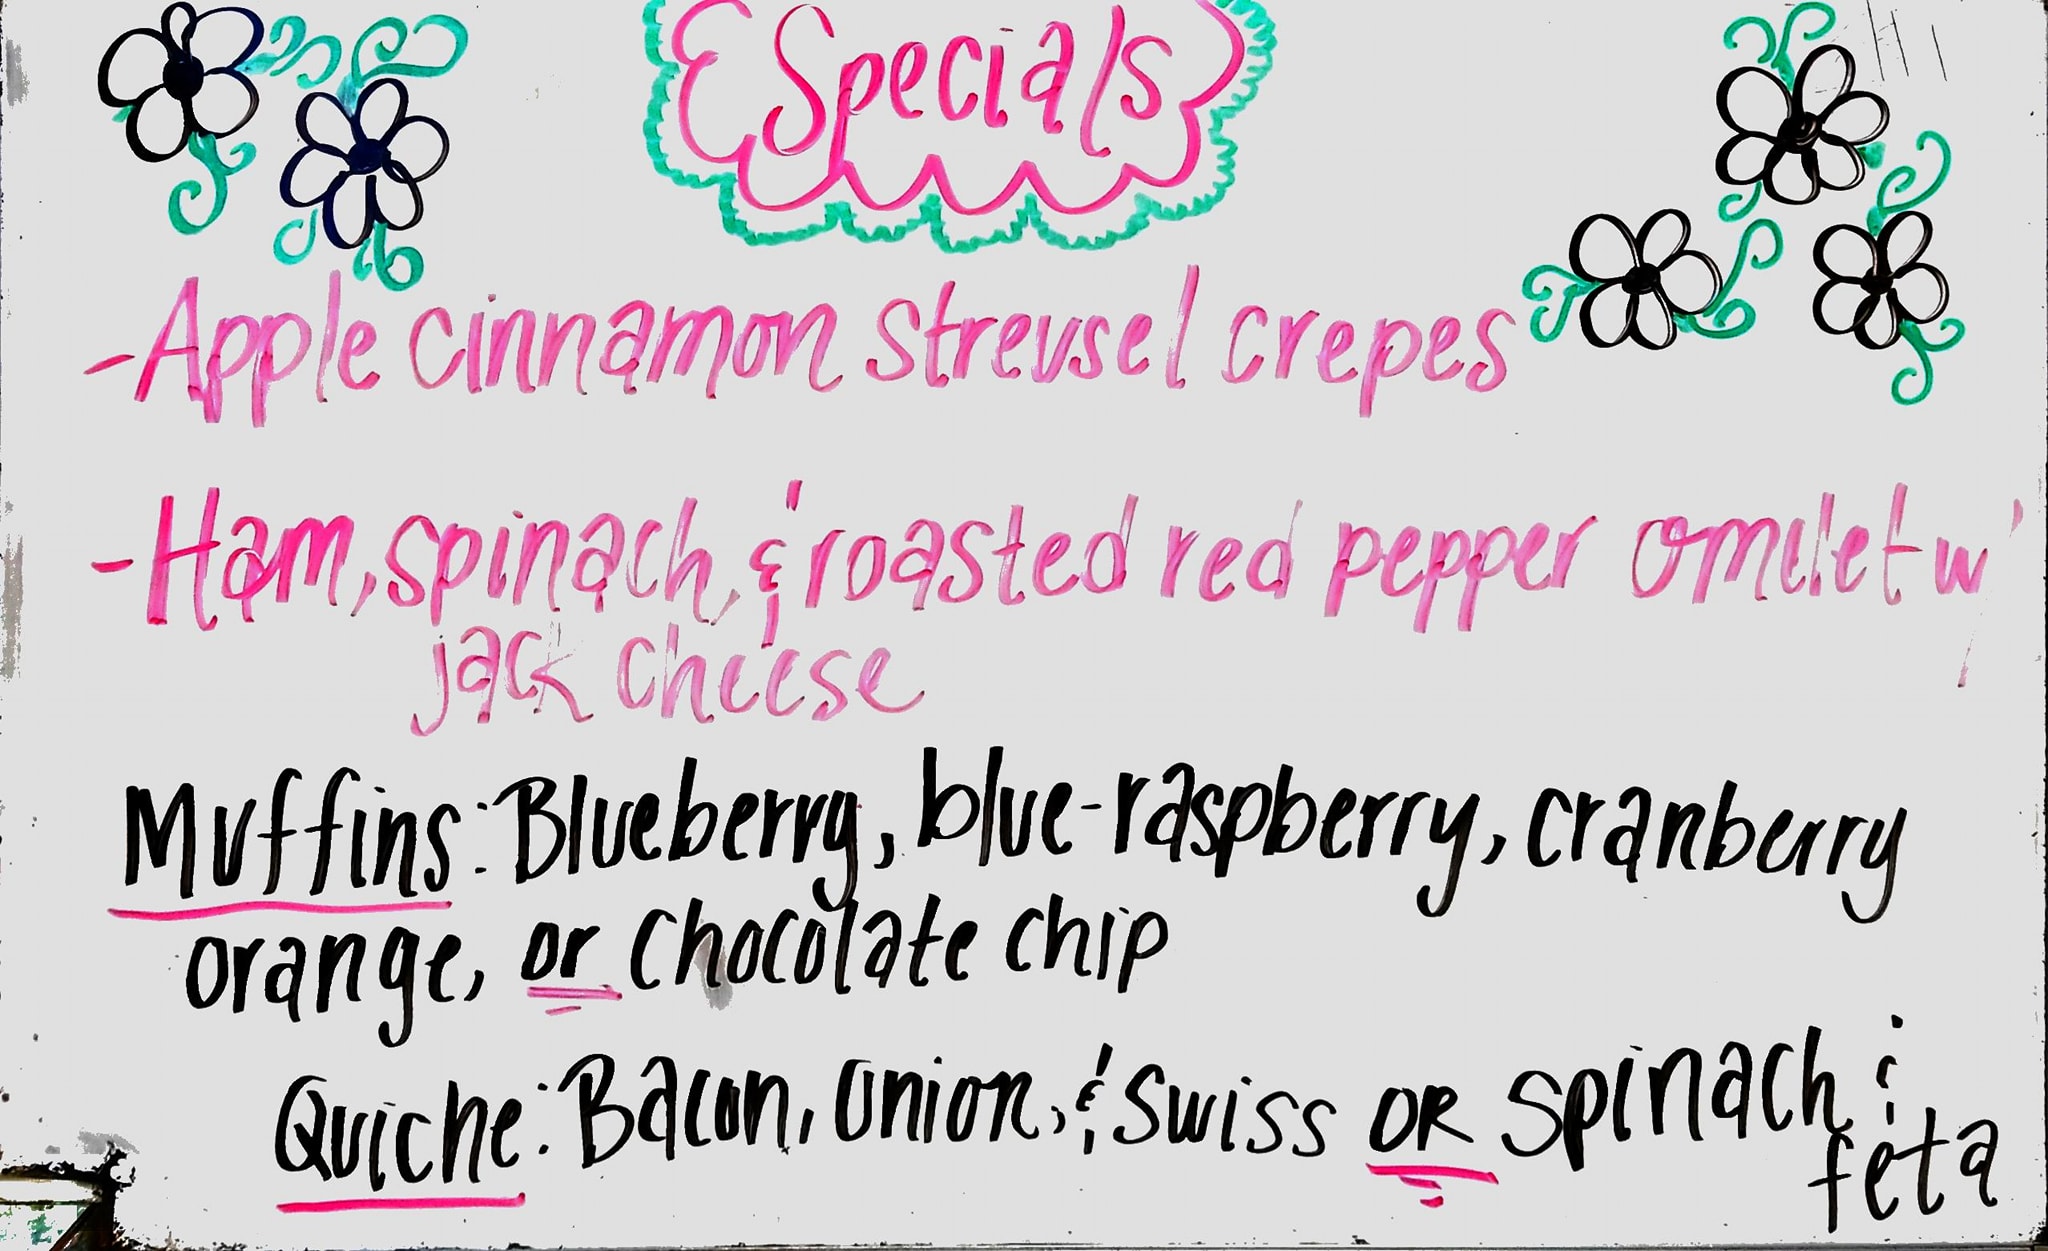 Specials
-Apple cinnamon streusel crepes
-Ham, spinach, & roasted red pepper omelet w/
jack cheese
Muffins: Blueberry, blue-raspberry, cranberry
orange, or chocolate chip
Quiche: Bacon, onion, & swiss OR spinach &
feta